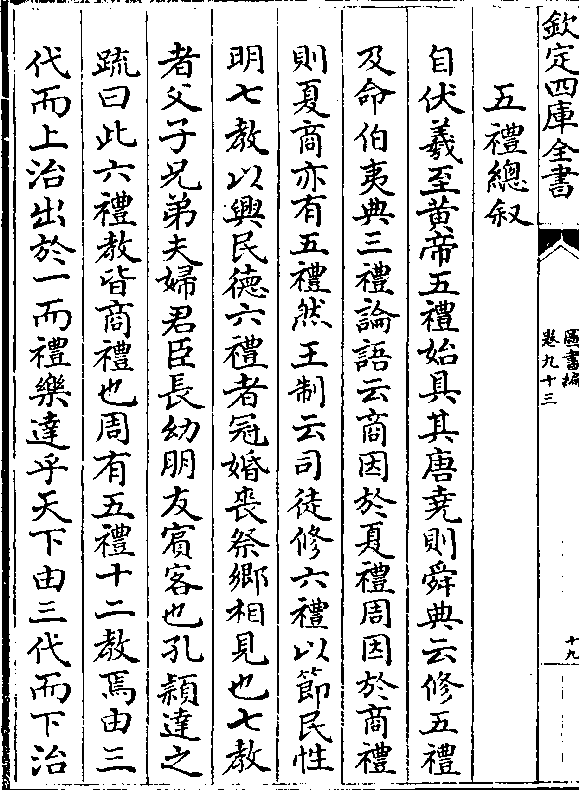 欽定四庫全書
圖書編
卷九十三
十九
五禮總叙
自伏羲至黄帝五禮始具其唐堯則舜典云修五禮
及命伯夷典三禮論語云商因於夏禮周因於商禮
則夏商亦有五禮然王制云司徒修六禮以節民性
明七教以興民德六禮者冠婚喪祭鄉相見也七教
者父子兄弟夫婦君臣長幼朋友賓客也孔頴達之
疏曰此六禮教皆商禮也周有五禮十二教焉由三
代而上治出於一而禮樂達乎天下由三代而下治